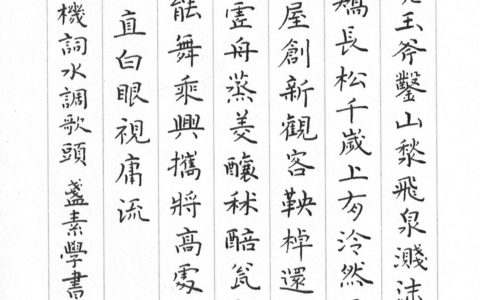 玉斧鑿山飛泉濺沫
矯長松千歲上有泠然
屋創新觀客鞅棹還
舟蒸羙釀秫醅瓮
能舞乘興攜將高處
直白眼視庸流
機詞水調歌頭 盞素學書